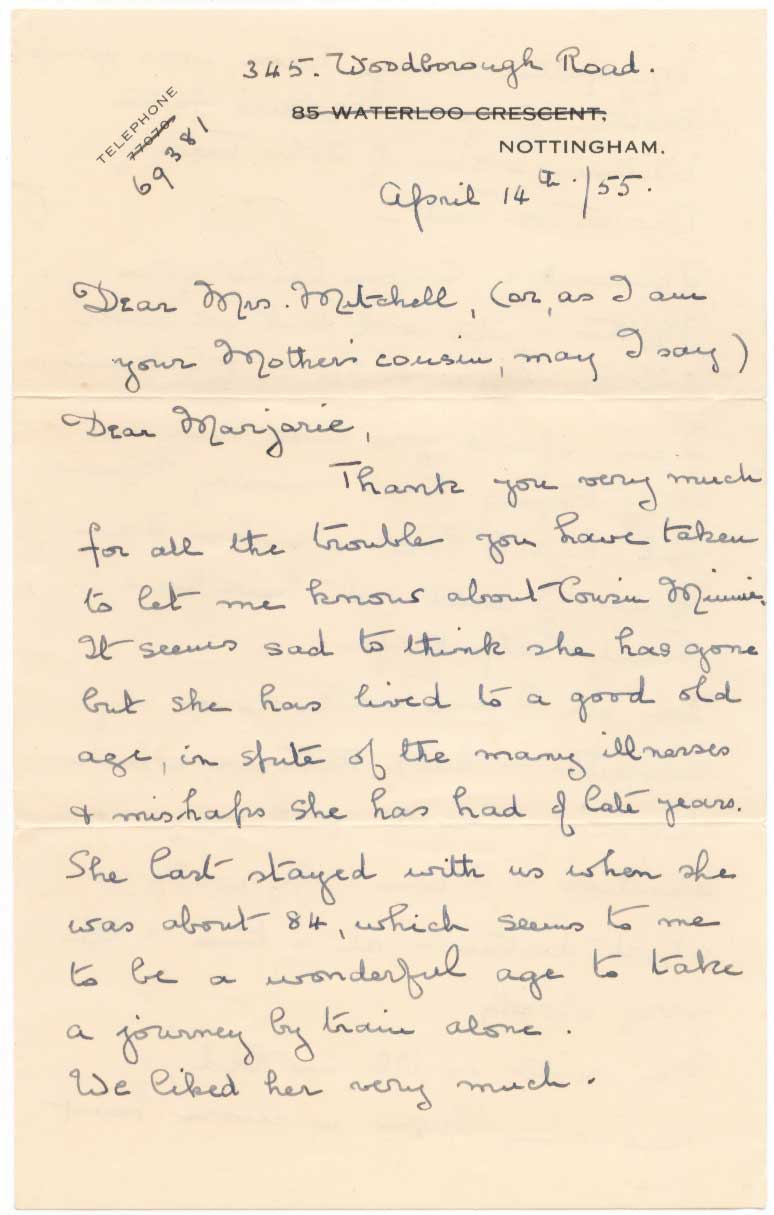 345. Woodborough Road.
TELEPHONE
77070
69381
85 WATERLOO CRESCENT,
NOTTINGHAM.
April 14th./55.
Dear Mrs. Mitchell, (or, as I am
your Mother's cousin, may I say)
Dear Marjorie,
Thank you very much
for all the trouble you have taken
to let me know about Cousin Minnie.
It seems sad to think she has gone
but she has lived to a good old
age, in spite of the many illnesses
& mishaps she has had of late years.
She last stayed with us when she
was about 84, which seems to me
to be a wonderful age to take
a journey by train alone.
We liked her very much.